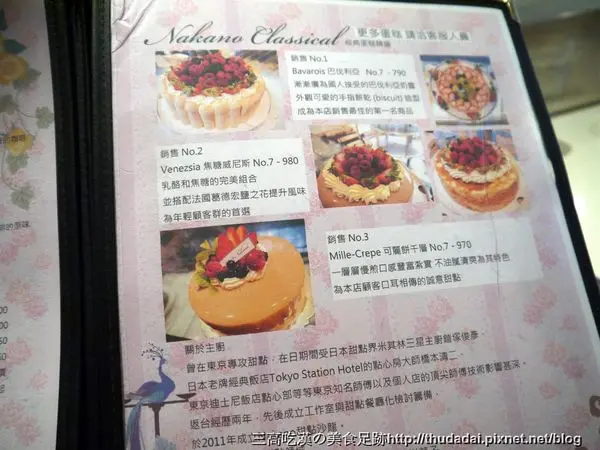 Nakano Classical 更多蛋糕 請洽客服人員
經典蛋糕精選
銷售 No.1
Bavarois 巴伐利亞 No.7 - 790
漸漸廣為國人接受的巴伐利亞奶凍
外觀可愛的手指餅乾 (biscuit) 造型
成為本店銷售最佳的第一名商品
銷售 No.2
Venezsia 焦糖威尼斯 No.7 - 980
乳酪和焦糖的完美組合
並搭配法國葛德宏鹽之花提升風味
為年輕顧客群的首選
銷售 No.3
Mille-Crepe 可麗餅千層 No.7 - 970
一層層優煎口感豐富紮實 不油膩清爽為其特色
為本店顧客口耳相傳的誠意甜點
關於主廚
曾在東京專攻甜點，在日期間受日本甜點界米其林三星主廚鎧塚俊彥，
日本老牌經典飯店Tokyo Station Hotel的點心房大師橋本濤二，
東京迪士尼飯店點心部等等東京知名師傅以及個人店的頂尖師傅技術影響甚深。
返台經歷兩年，先後成立工作室與甜點餐廳化檢討籌備，
於2011年成立 甜點沙龍。
三商吃漢の美食足跡http://thudadai.pixnet.net/blog